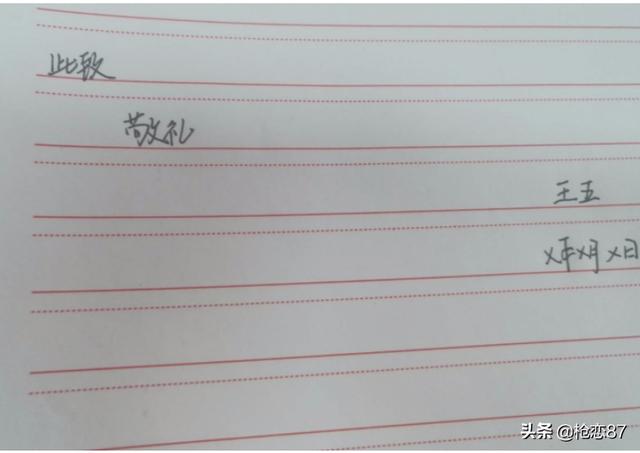 此致
敬礼
王五
X年X月X日
头条 @枪恋87